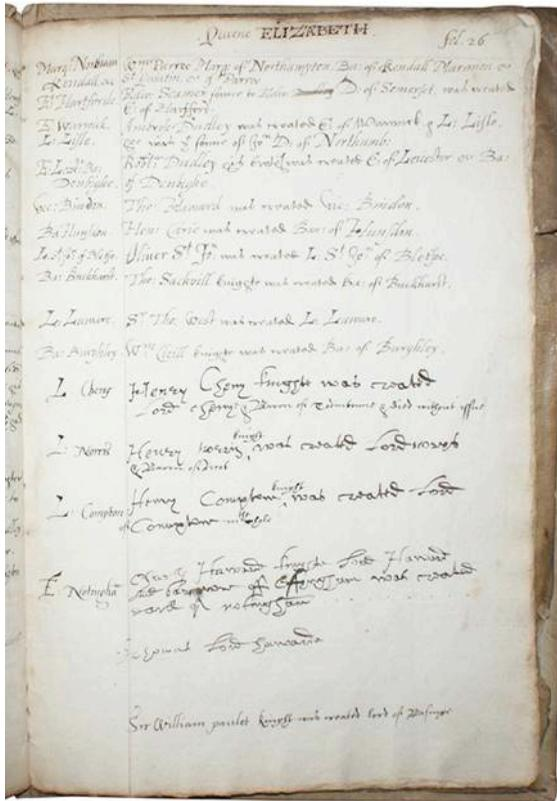 Queene ELIZABETH
fol. 26
Marq. Northam Wm Parree Marq. of Northampton Ba: of Kendall
Kendall &c St Quintin &c of Parree
E. Hartforde
D: of Somerset, was created
E. of Hartford.
E. Warwick. Ambrose Dudley was created E. of Warwick & L: Lisle.
L: Lisle. sonne of D: of Northumb:
Robt Dudley was created E. of Leicester & Ba:
Denbighe. of Denbighe
Vic: Bindon. Tho: Haward was created Vic: Bindon.
Ba: Hunsdon Hen: Carie was created Bar: of Hunsdon.
Oliver St Jon was created L: St Jon of Bletsoe.
Ba: Buckhurst. Tho: Sackvill knighte was created Ba: of Buckhurst.
L: Laware. Sr Tho: West was created L: Laware.
Ba: Burghley Wm Cicill knighte was created Ba: of Burghley.
L Cheny Henery Cheny knighte was created
Lord Cheny & Baron of & died without issue
L: Norris Henery Norris knight was created Lord
& Baron of
L: Compton Henry Compton knight was created Lord
of Compton
E Notingha Charles Haward knighte Lord Haward
and of Effingham was created
earle of notingham
Thomas Lord hawarde
Sir William paulet knight was created lord of Basinge